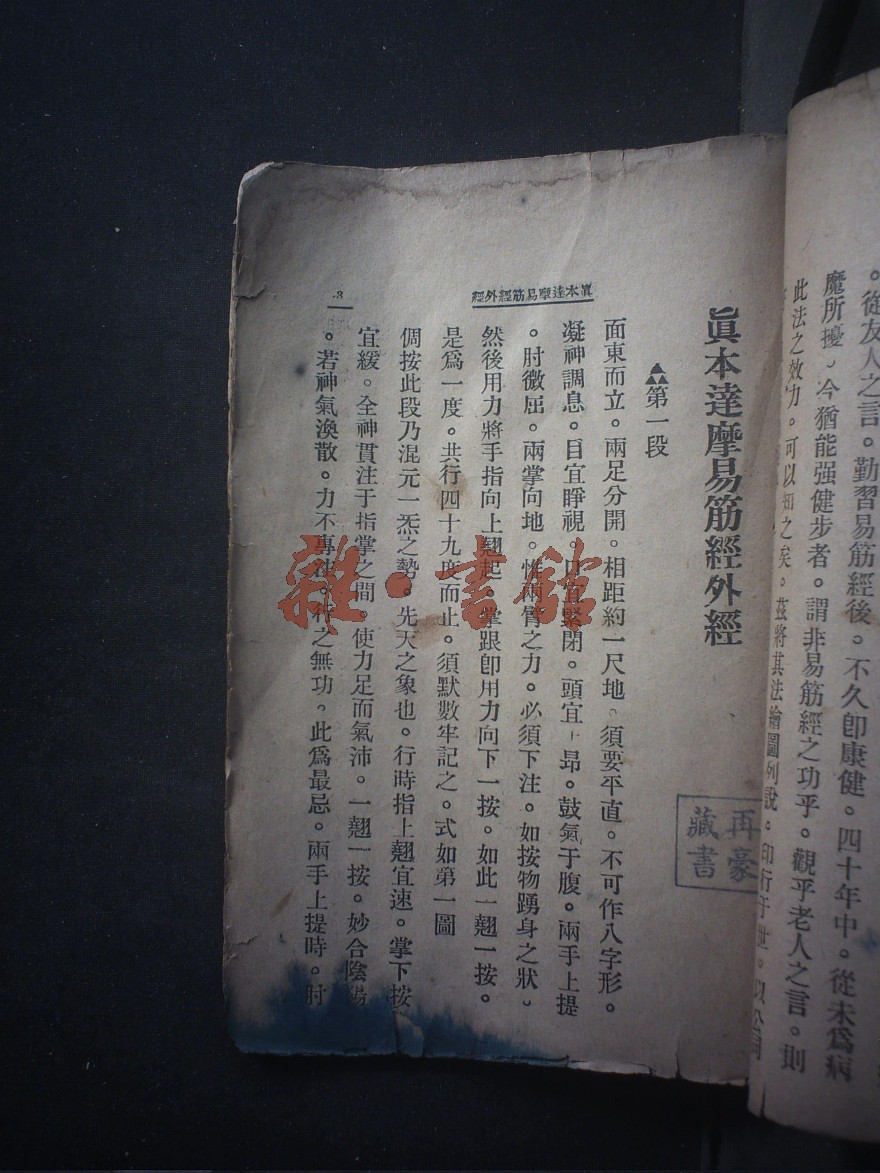 。從友人之言。勤習易筋經後。不久卽康健。四十年中。從未爲病
魔所擾。今猶能强健步者。謂非易筋經之功乎。觀乎老人之言。則
此法之效力。可以知之矣。茲將其法繪圖列說。印行于世。以公同
眞本達摩易筋經外經
▲▲第一段
面東而立。兩足分開。相距約一尺地。須要平直。不可作八字形。
凝神調息。目宜睜視。口宜緊閉。頭宜上昻。鼓氣于腹。兩手上提
。肘微屈。兩掌向地。惟兩臂之力。必須下注。如按物踴身之狀。
然後用力將手指向上翹起。掌跟卽用力向下一按。如此一翹一按。
是爲一度。共行四十九度而止。須默數牢記之。式如第一圖
倜按此段乃混元一炁之勢。先天之象也。行時指上翹宜速。掌下按
宜緩。全神貫注于指掌之間。使力足而氣沛。一翹一按。妙合陰陽
。若神氣渙散。力不專注。行之無功。此爲最忌。兩手上提時。肘
眞本達摩易筋經外經
3
再豪
藏書
雜·書館